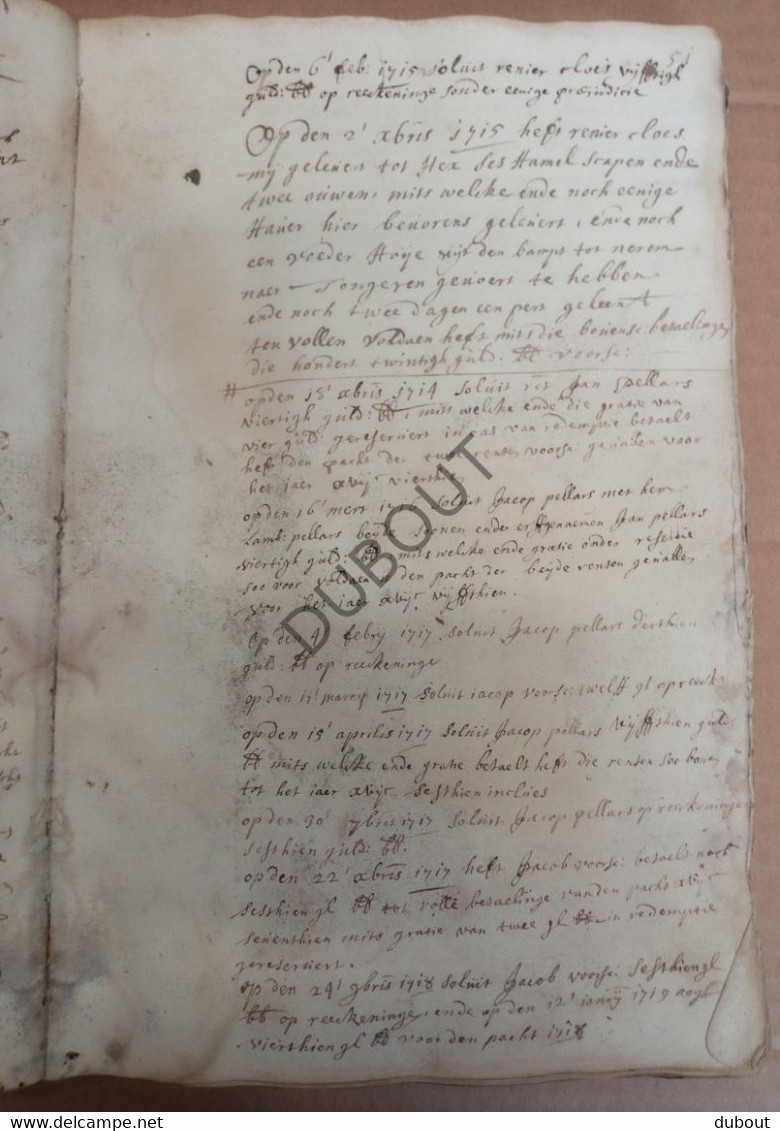 51
Opden 6' feb: 1715 soluit renier cloes vijfftigh
guld: bb op reeckeninge sonder eenige præiudicie
Op den 2' xbris 1715 heft renier cloes
mij geleuert tot Hex ses Hamel scapen ende
twee ouwen, mits welcke ende noch eenige
Hauer hier beuorens geleuert, ende noch
een voeder Hoije uijt den bampt tot nerem
naer Tongeren geuoert te hebben
ende noch twee dagen een pert geleent
ten vollen voldaen heft mits die bouense betaelinge
die hondert twintigh guld: bb voorse:
# opden 18' xbris 1714 soluit Jan pellars
viertigh guld: bb, mits welcke ende die gratie van
vier guld: gereserviert in cas van redemptie betaelt
heft den pacht der twee renten voorse: geuallen voor
het iaer xvijc vierthien
opden 16' mert soluit Jacop pellars met hem
Lamb: pellars beijde sonen ende erffgenaemen Jan pellars
viertigh guld: bb mits welcke ende gratie onder
soo voor voldaen den pacht der beijde renten geuallen
voor het iaer xvijc vijffthien.
Op den 4' febrij 1717 soluit Jacop pellars derthien
guld: bb op reeckeninge
opden 11' martij 1717 soluit iacop voorse: twelff gl op reeck:
opden 15' aprilis 1717 soluit Jacop pellars vijffthien guld:
bb mits welcke ende gratie betaelt heft die renten soo bouen
tot het iaer xvijc sesthien inclues
opden 30' 7bris 1717 soluit Jacop pellars op reeckeninge
sesthien guld: bb.
opden 22' xbris 1717 heft Jacob voorse: betaelt noch
sesthien gl bb tot volle betaelinge vanden pacht xvijc
seuenthien mits gratie van twee gl bb in redemptie
gereserviert.
op den 24' 9bris 1718 soluit Jacob voorse: sesthien gl
bb op reeckeninge, ende op den 12' ianuarij 1719 noch
vierthien gl bb voor den pacht 1718
DUBOUT
delcampe.net
dubout